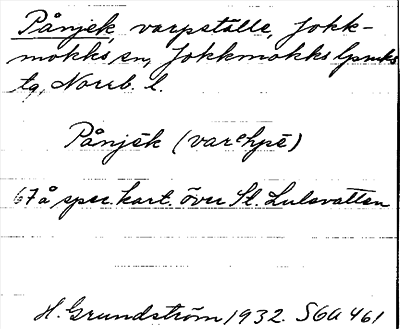 Pånjek, varpställe, Jokk-
mokks sn, Jokkmokks lpmks
tg, Norrb. l.
Pånjēk (varᵉhpē)
67 å spec. kart. över St. Lulevatten
H. Grundström 1932. SOU 461